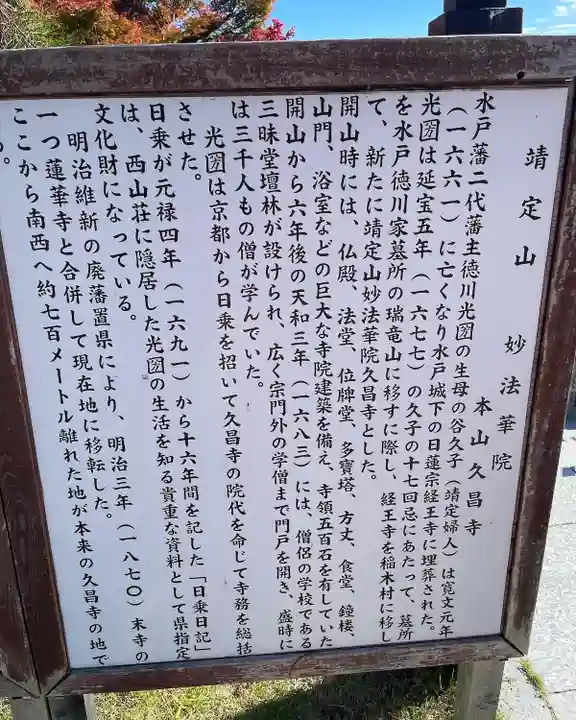 靖定山　妙法華院
本山久昌寺
水戸藩二代藩主徳川光圀の生母の谷久子（靖定婦人）は寛文元年
（一六六一）に亡くなり水戸城下の日蓮宗経王寺に埋葬された。
光圀は延宝五年（一六七七）の久子の十七回忌にあたって、墓所
を水戸徳川家墓所の瑞竜山に移すに際し、経王寺を稲木村に移し
て、新たに靖定山妙法華院久昌寺とした。
開山時には、仏殿、法堂、位牌堂、多寶塔、方丈、食堂、鐘楼、
山門、浴室などの巨大な寺院建築を備え、寺領五百石を有していた
開山から六年後の天和三年（一六八三）には、僧侶の学校である
三昧堂壇林が設けられ、広く宗門外の学僧まで門戸を開き、盛時に
は三千人もの僧が学んでいた。
光圀は京都から日乗を招いて久昌寺の院代を命じて寺務を総括
させた。
日乗が元禄四年（一六九一）から十六年間を記した「日乗日記」
は、西山荘に隠居した光圀の生活を知る貴重な資料として県指定
文化財になっている。
明治維新の廃藩置県により、明治三年（一八七〇）末寺の
一つ蓮華寺と合併して現在地に移転した。
ここから南西へ約七百メートル離れた地が本来の久昌寺の地で
る。